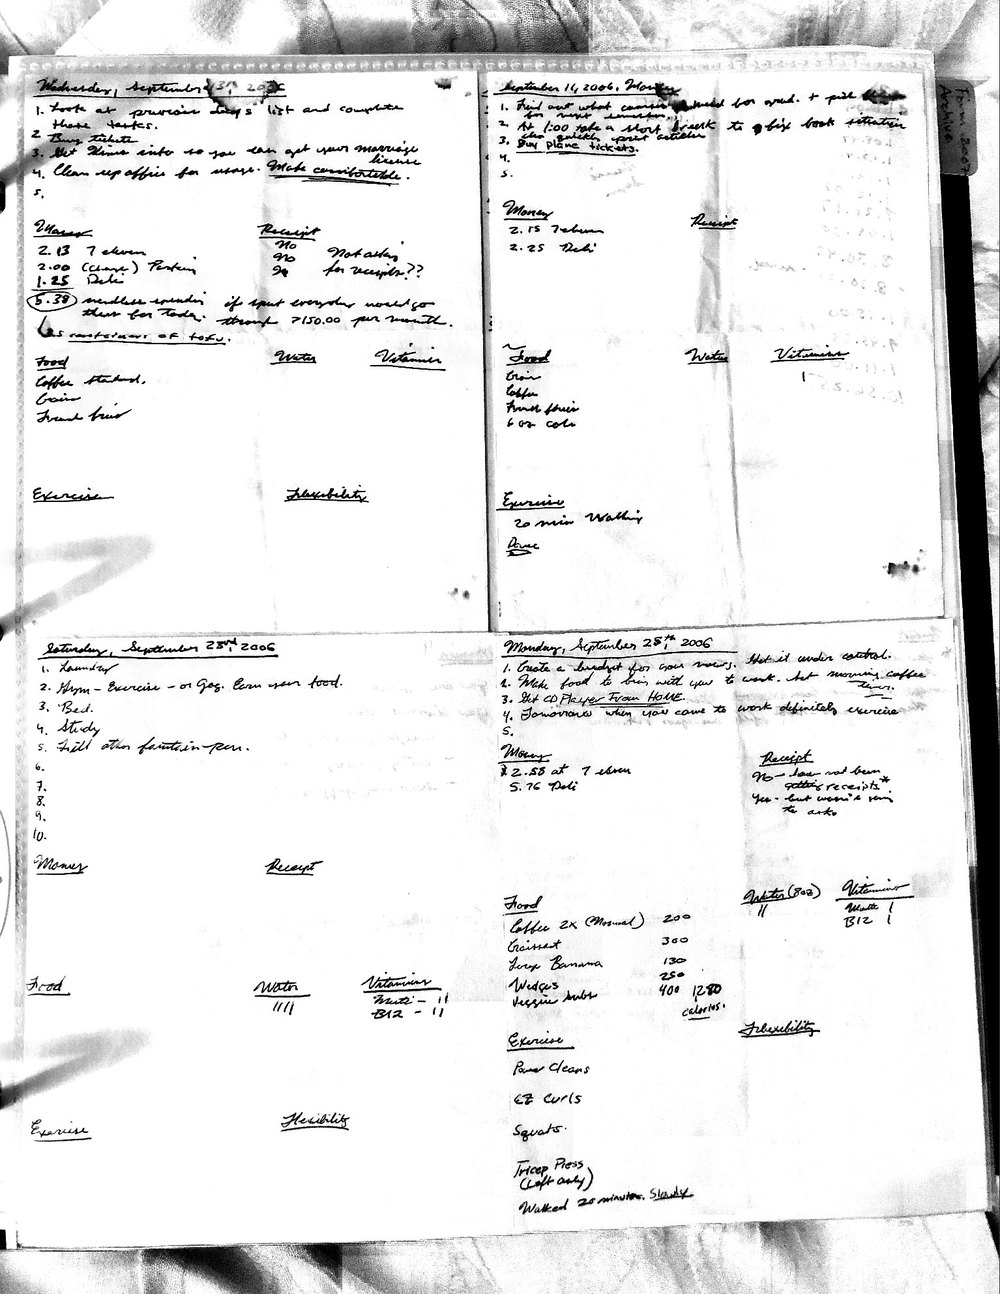 Wednesday, September
1. Look at previous day's list and complete
these tasks.
2. Buy tickets
3. Get info so you can get your marriage
license
4. Clean up office for usage. Make comfortable.
5.
Money Receipt
2.13 7 eleven No
2.00 No Not asking
1.25 Deli for receipts??
5.38 needless if spent everyday would go
through >150.00 per month.
containers of tofu.
Food Water Vitamins
Coffee standard.
Exercise Flexibility
September 2006. Monday
1. Find out what need for grad. + pick
for next semester.
2. At 1:00 take a short break to fix book situation
3. Buy plane tickets.
4.
5.
Money Receipt
2.15 7 eleven
2.25 Deli
Food Water Vitamins
1
Coffee
6 oz
Exercise
20 min Walking
Saturday, September 23rd, 2006
1. Laundry
2. Gym - Exercise - or Gag. Earn your food.
3. Bed.
4. Study
5. Fill other fountain-pen.
6.
7.
8.
9.
10.
Money Receipt
Food Water Vitamins
IIII Multi - II
B12 - II
Exercise Flexibility
Monday, September 25th, 2006
1. Create a budget for your money. Get it under control.
2. Make food to bring with you to work. Get morning coffee
3. Get CD Player From HOME.
4. Tomorrow when you come to work definitely exercise
5.
Money Receipt
$2.58 at 7 eleven No - have not been
getting receipts*
5.76 Deli Yes - but wasn't going
to ask.
Food Water (8oz) Vitamins
II Multi I
B12 I
Coffee 2x (Normal) 200
Croissant 300
Large Banana 130
Wedges 250
Veggie Subs 400 1280
calories.
Exercise Flexibility
Power Cleans
EZ Curls
Squats.
Tricep Press
(Left only)
Walked 20 minutes. Slowly
From 2007
Archive